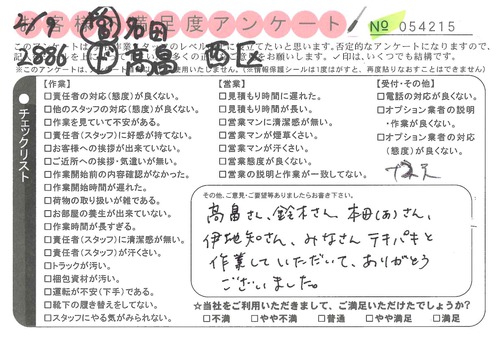 お客様満足度アンケート
№ 054215
2886
高畠 西区
このアンケートは
※このアンケートは、
使用いたしません。(※情報保護シールは1度はがすと、再度貼りなおすことはできません)
チェックリスト
【作業】
□責任者の対応(態度)が良くない。
□他のスタッフの対応(態度)が良くない。
□作業を見ていて不安がある。
□責任者(スタッフ)に好感が持てない。
□お客様への挨拶が出来ていない。
□ご近所への挨拶・気遣いが無い。
□作業開始前の内容確認がなかった。
□作業開始時間が遅れた。
□荷物の取り扱いが雑である。
□お部屋の養生が出来ていない。
□作業時間が長すぎる。
□責任者(スタッフ)に清潔感が無い。
□責任者(スタッフ)が汗くさい。
□トラックが汚い。
□梱包資材が汚い。
□運転が不安(下手)である。
□靴下の履き替えをしてない。
□スタッフにやる気がみられない。
【営業】
□見積もり時間に遅れた。
□見積もり時間が長い。
□営業マンに清潔感が無い。
□営業マンが煙草くさい。
□営業マンが汗くさい。
□営業態度が良くない。
□営業の説明と作業が一致してない。
【受付・その他】
□電話の対応が良くない。
□オプション業者の説明
・作業が良くない。
□オプション業者の対応
(態度)が良くない。
その他、ご意見・ご要望等ありましたらお書き下さい。
高畠さん、鈴木さん、本田(あ)さん、
伊地知さん、みなさんテキパキと
作業していただいて、ありがとう
ございました。
☆当社をご利用いただきまして、ご満足いただけたでしょうか?
□不満 □やや不満 □普通 □やや満足 □満足